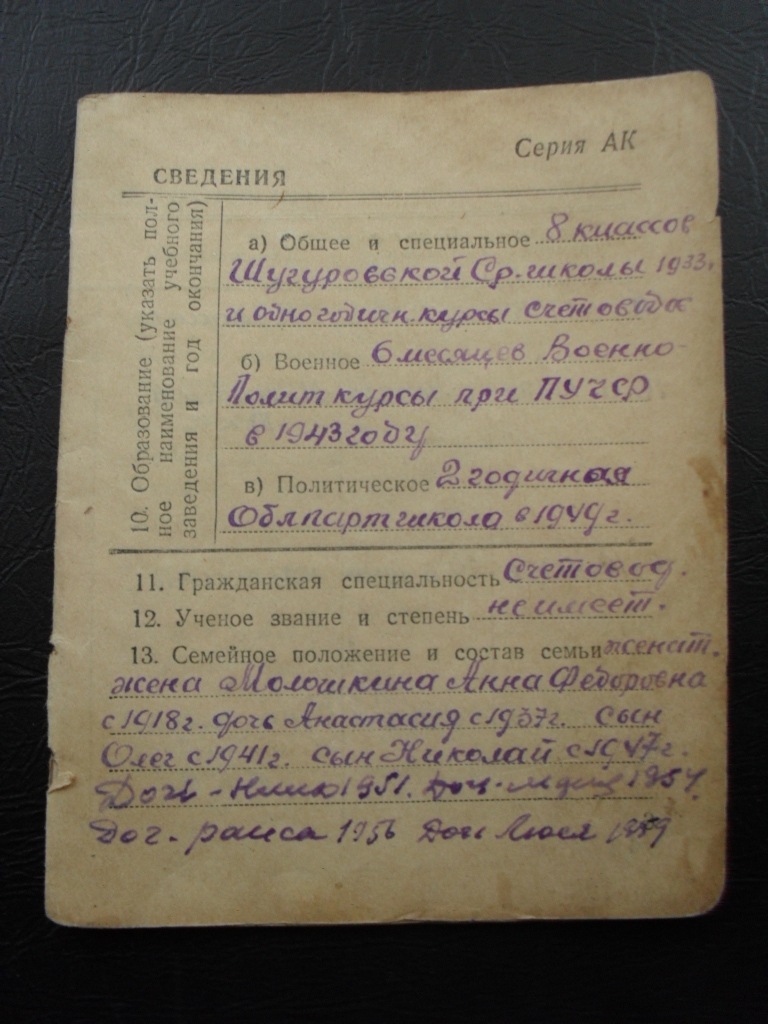 Серия АК
СВЕДЕНИЯ
10. Образование (указать пол-
ное наименование учебного
заведения и год окончания)
а) Общее и специальное 8 классов
Шугуровской Ср. школы 1933г
и одногодичн. курсы счетовода
б) Военное 6 месяцев Военно-
Полит курсы при ПУЧФ
в 1943 году
в) Политическое 2 годичная
Облпартшкола в 1949 г.
11. Гражданская специальность Счетовод.
12. Ученое звание и степень не имеет.
13. Семейное положение и состав семьи женат.
жена Молошкина Анна Федоровна
с 1918 г. дочь Анастасия с 1937 г. сын
Олег с 1941 г. сын Николай с 1947 г.
Дочь - 1951. Доч - 1954.
Доч. - раиса 1956 Доч Люся 1959